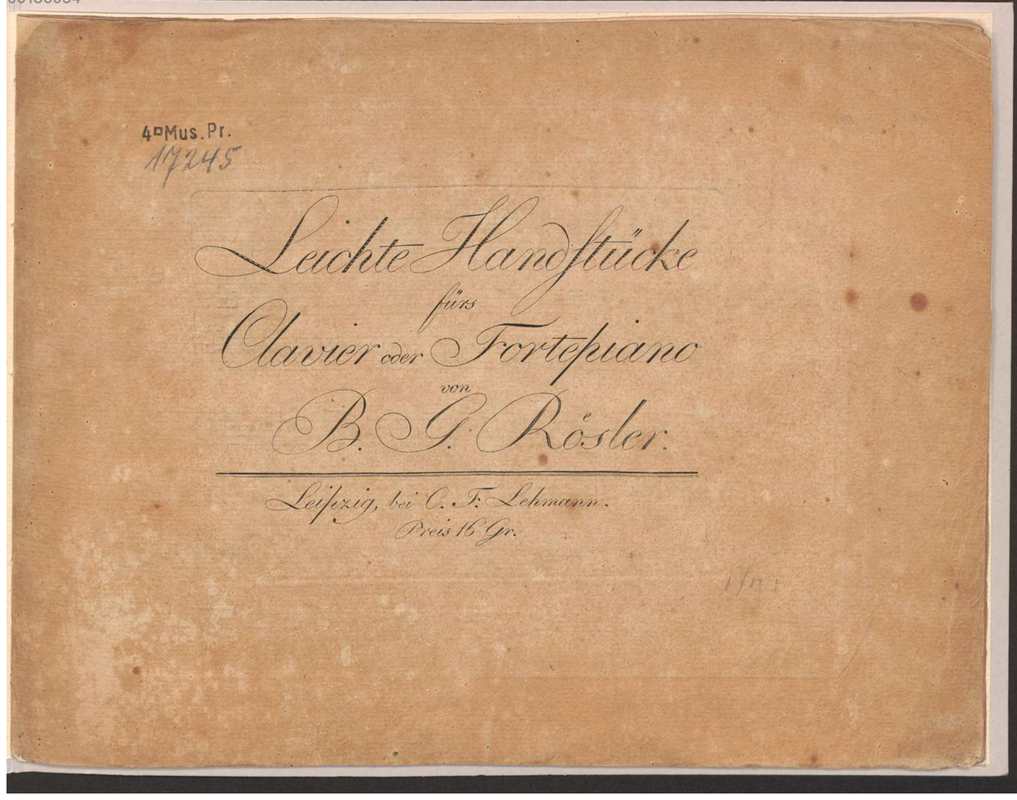 4°Mus.Pr.
17245
Leichte Handstücke
fürs
Clavier oder Fortepiano
von
B. G. Rösler.
Leipzig, bei C. F. Lehmann.
Preis 16 Gr.